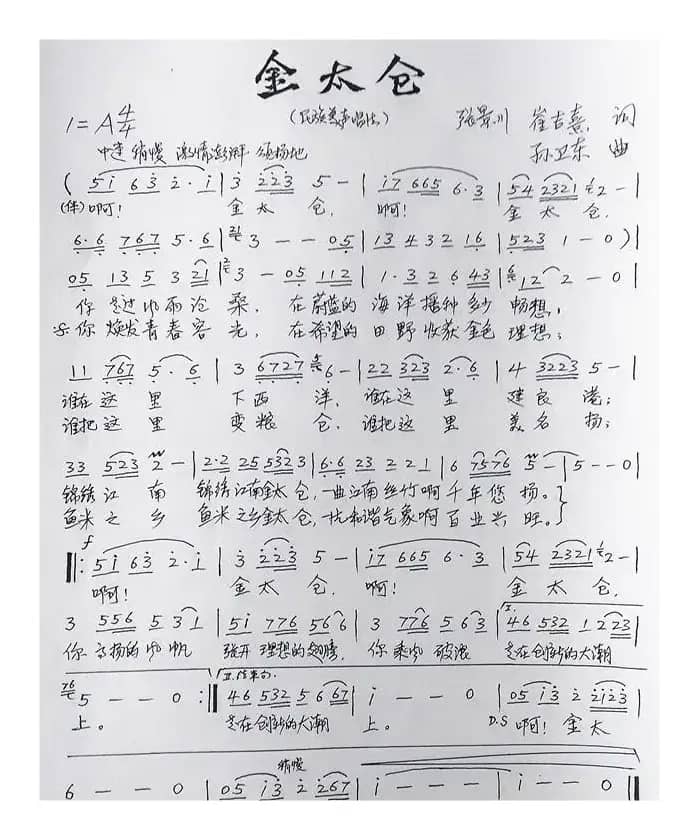 金太仓
(民族美声唱法)
1=A 4/4
张景川 崔吉喜 词
中速 稍慢 激情澎湃 颂扬地
孙卫东 曲
( 5i 63 2·i | 3 223 5 - | i7 665 6·3 | 54 2321 2 -
(伴)啊! 金太仓, 啊! 金太仓,
6·6 767 5·6 | 3 - - 05 | 13 432 16 | 523 1 - 0 )
05 13 5 3 21 | 3 - 05 112 | 1·3 2 6 43 | 12 2 - 0
你 风雨沧桑, 在蔚蓝的海洋播种多少畅想,
你焕发青春容光, 在希望的田野收获金色理想;
11 767 5·6 | 3 6727 6 - | 22 323 2·6 | 4 3223 5 -
谁在这里 下西洋, 谁在这里 建良港;
谁把这里 变粮仓, 谁把这里 美名扬;
33 523 2 - | 2·2 25 532 3 | 6·6 23 2 2 1 | 6 7576 5 - | 5 - - 0
锦绣江南 锦绣江南金太仓, 一曲江南丝竹啊千年悠扬。
鱼米之乡 鱼米之乡金太仓, 一 和谐气象啊百业兴旺。
f
5i 63 2·i | 3 223 5 - | i7 665 6·3 | 54 2321 2 -
啊! 金太仓, 啊! 金太仓,
I.
3 556 5 3 1 | 5i 776 56 6 | 3 776 5 6 3 | 46 532 1 223
你高扬的风帆 张开理想的翅膀, 你乘风破浪 走在创新的大潮
II. 结束句.
76 5 - - 0 :| 46 532 5 6 67 | i - - 0 | 05 i3 2 2123
上。 走在创新的大潮 上。 D.S 啊! 金太
稍慢
6 - - 0 | 05 i3 2 267 | i - - - | i - - 0